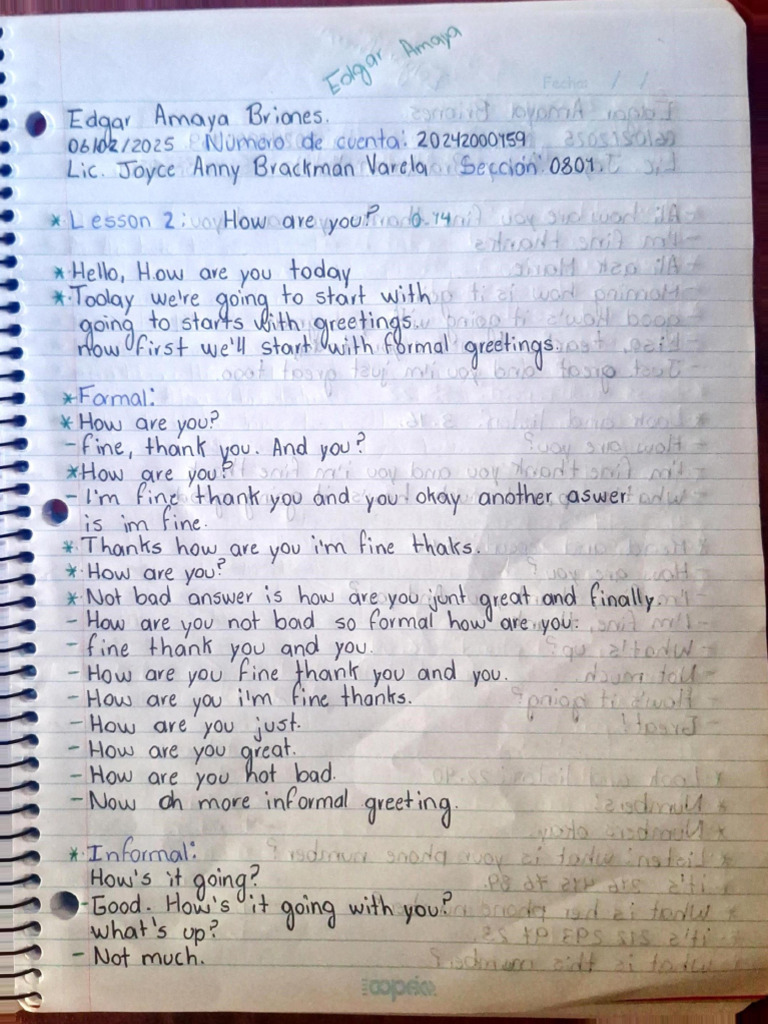 Edgar Amaya
Fecha: / /
Edgar Amaya Briones.
06/02/2025 Número de cuenta: 20242000459
Lic. Joyce Anny Brackman Varela Sección: 0801.
* Lesson 2: How are you? 0.14
* Hello, How are you today
* Today we're going to start with
going to starts with greetings.
now first we'll start with formal greetings.
* Formal:
* How are you?
- fine, thank you. And you?
* How are you?
- I'm fine thank you and you okay another aswer
is im fine.
* Thanks how are you i'm fine thaks.
* How are you?
* Not bad answer is how are you junt great and finally.
- How are you not bad so formal how are you:
- fine thank you and you.
- How are you fine thank you and you.
- How are you i'm fine thanks.
- How are you just.
- How are you great.
- How are you not bad.
- Now oh more informal greeting.
* Informal:
How's it going?
- Good. How's it going with you?
what's up?
- Not much.
coprica